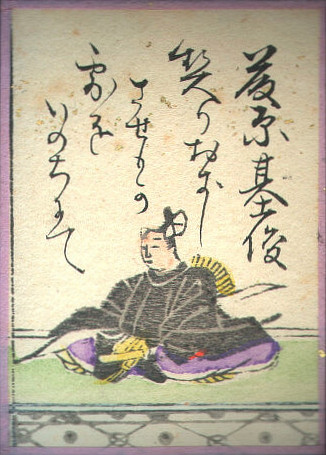 藤原基俊
契りおきし
させもか
露を
いのちにて